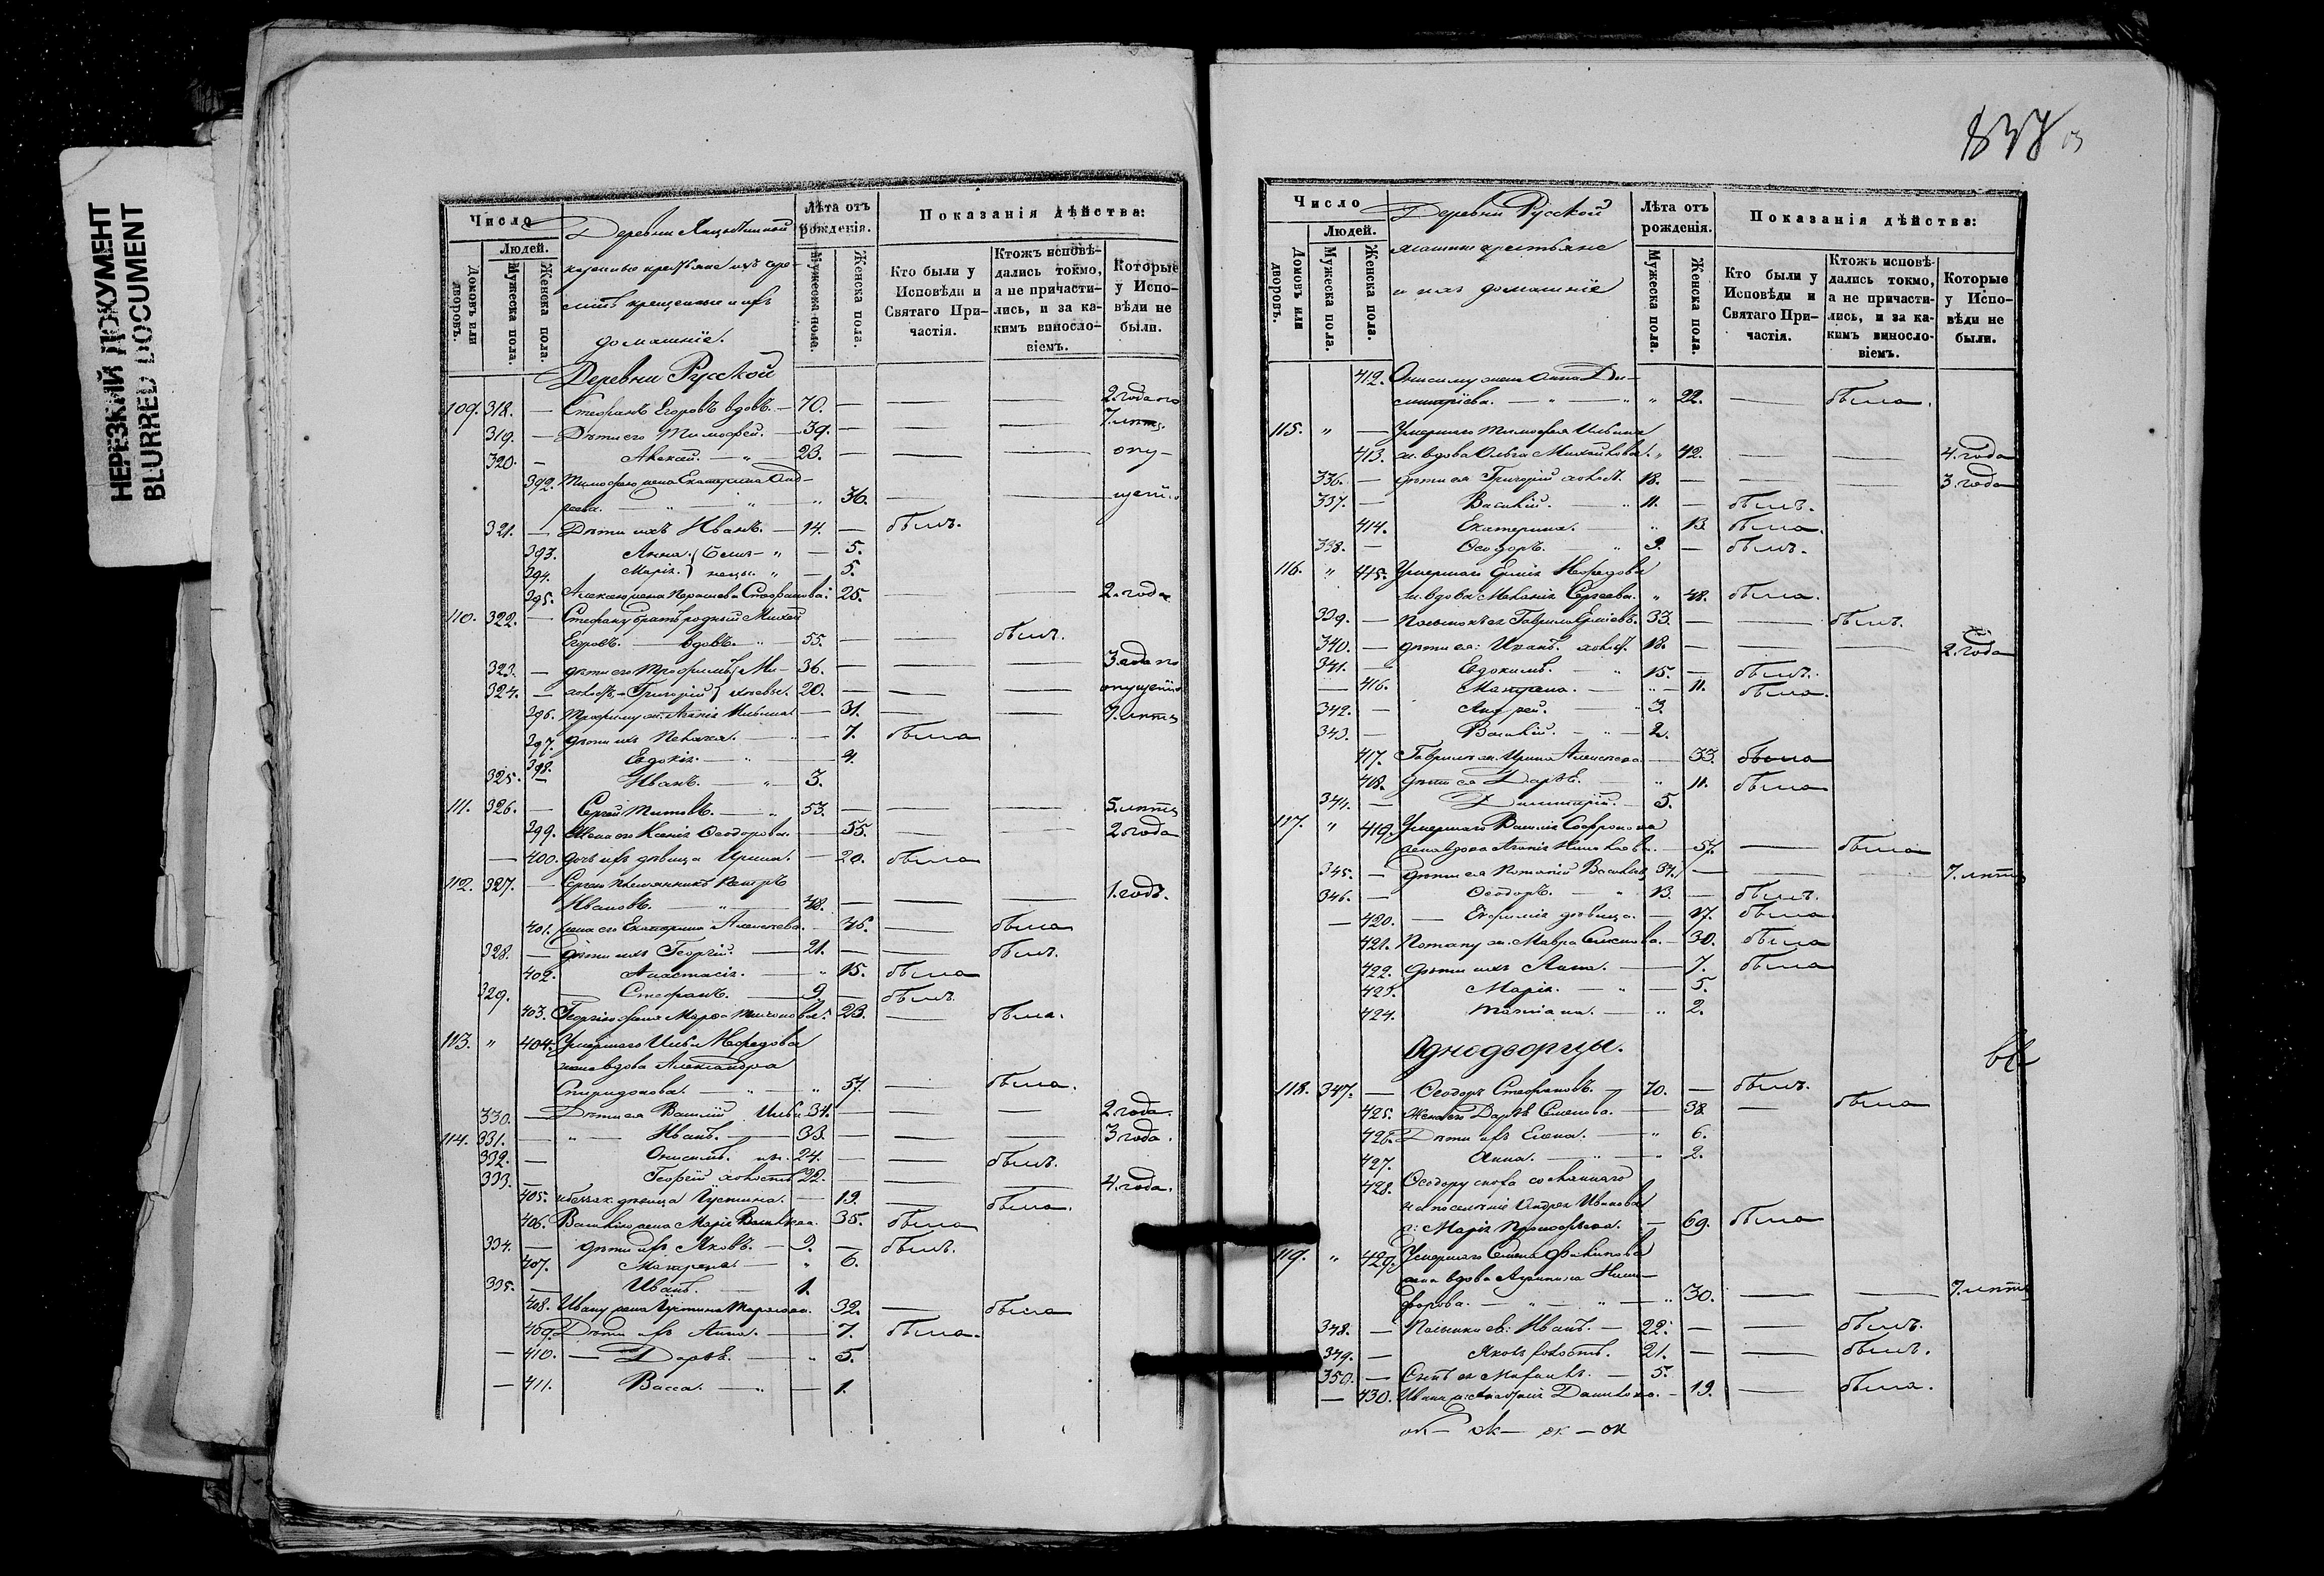 НЕРЕЗКИЙ ДОКУМЕНТ
BLURRED DOCUMENT
Число
Людей.
Домовъ или дворовъ.
Мужеска пола.
Женска пола.
Деревни
крещенные и ихъ
домашніе.
Лѣта отъ рожденія.
Мужеска пола.
Женска пола.
Показанія дѣйства:
Кто были у Исповѣди и Святаго При-частія.
Ктожъ исповѣ-дались токмо, а не причасти-лись, и за ка-кимъ винносло-віемъ.
Которые у Испо-вѣди не были.
Деревни Русской
109. 318. — Стефанъ Егоровъ вдовъ. — 70. — — — 2. года по
319. — Дѣти его Тимофей. — 39. — — — 7. лѣтъ
320. — Алексѣй. — „ — 23. — — — опу-
392. Тимофею жена Екатерина Анд-
реева. — „ — „ — „ 36. — — щенію
321. — Дѣти ихъ Иванъ. — 14. — былъ.
393. Анна. } близ- „ — 5.
394. Марія. } нецы. „ — 5.
395. Алексѣю жена Стефанова. 25. — — 2. года
110. 322. — Стефану братъ родный Михей
Егоровъ. — вдовъ. „ 55. — — былъ.
323. — дѣти его Трофимъ } Ми- 36. — — — 3 года по
324. — холостъ. Григорій } хѣевы. 20. — — — опущенію
396. Трофиму ж. Агафія Ильина — 31. — — 7. лѣтъ
397. дѣти ихъ Пелагея. — „ — 7. была
398. Евдокія. — „ — 4.
325. — Иванъ. — „ — 3.
111. 326. — Сергѣй Титовъ. — „ 53. — — — 5. лѣтъ
399. Жена его Ксенія Ѳеодорова. — 55. — — 2. года
— 400. дочь ихъ дѣвица Ирина. — 20. была
112. 327. — Сергѣю племянникъ Петръ
Ивановъ. — „ — 48. — — — 1. годъ.
401. жена его Екатерина Алексѣева. — 45. — была
328. — дѣти ихъ Георгій. — 21. — — былъ.
402. Анастасія. — „ 15. была
329. — Стефанъ. — 9 — былъ
403. Георгію жена Марѳа Тихонова. 23. — была.
113. „ 404. Умершаго Ильи Меѳедова
жена вдова Александра
Спиридонова. — „ — „ 57. — была.
330. — Дѣти ея Василій Ильи. 34. — — — 2. года.
114. 331. — „ — Иванъ. — 33. — — — 3 года.
332. — Онисимъ. 24. — — былъ.
333. — Георгій холостъ 22. — — — 4. года.
405. дѣвица Густина. — 19. — была.
406. Василію жена Марія Васильева. 35. была
334. — дѣти ихъ Яковъ. — 9. — былъ.
407. Матрена — „ 6.
335. — Иванъ. — 1.
408. Ивану жена Густина 32. — была
409. Дѣти ихъ Анна. — 7. была.
— 410. — Дарья. — „ 5.
— 411. Васса. — „ — 1.
837
Число
Людей.
Домовъ или дворовъ.
Мужеска пола.
Женска пола.
Деревни Русской
крестьяне
и ихъ домашніе
Лѣта отъ рожденія.
Мужеска пола.
Женска пола.
Показанія дѣйства:
Кто были у Исповѣди и Святаго При-частія.
Ктожъ исповѣ-дались токмо, а не причасти-лись, и за ка-кимъ винносло-віемъ.
Которые у Испо-вѣди не были.
412. Онисиму жена Анна Ди-
митріева. — „ — „ „ 22. — была.
115. „ — Умершаго Тимофея Ильина
413. ж. вдова Ольга Михайлова. „ 42. — — 4. года
336. — дѣти ея Григорій холост. 18. — — — 3. года
337. — Василій. — „ 11. — былъ.
414. Екатерина. — „ 13 была.
338. — Ѳеодоръ. — „ 9. — былъ.
116. „ 415. Умершаго Ермія Меѳедова
ж. вдова Меланія Сергеева. „ 48. была.
339. — Гаврило Ерміевъ. 33. — — былъ.
340. — дѣти ея: Иванъ. холост. 18. — — — 2. года
341. — Евдокимъ. — „ 15. — былъ.
— 416. Матрена. — „ — 11. была.
342. — Андрей. — „ 3.
343. — Василій. — „ — 2.
417. Гаврилы ж. Ирина Алексѣева — 33. была
418. дѣти ея Дарья. — „ 11. была
344. — Димитрій. — 5.
117. „ 419. Умершаго Василія Софронова
жена вдова Агафія — 57. — была
345. — дѣти ея Потапій Васильевъ 34. — — — 7. лѣтъ
346. — Ѳеодоръ. — „ 13. — былъ.
— 420. — Евфимія дѣвица. — 17. была
421. Потапу ж. Мавра Семенова. — 30. была
422. дѣти ихъ Анна. — 7. была
423. Марія. — „ — 5.
424. Татіана. — „ 2.
Однодворцы.
118. 347. — Ѳеодоръ Стефановъ. — 70. — былъ.
425. Жена его Дарья Семенова. — 38 — была
426. Дѣти ихъ Елена. — „ 6.
427. Анна. — „ — „ 2.
428. Ѳеодору сноха сосланнаго
на поселеніе Андрея Иванова
ж: Марія Прокофьева. — 69. была
119. „ 429. Умершаго Семена Филипова
жена вдова Агрипина Ники-
форова. — „ — „ — „ 30. — — 7. лѣтъ
348. — Иванъ. — 22. — — былъ.
349. — Яковъ холостъ. 21. — — былъ.
350. — Сынъ ея — 5.
— 430. Ивана ж: Данилова. — 19. — была.